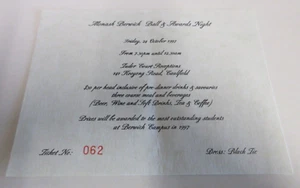 Monash Berwick Ball & Awards Night
Friday, 24 October 1997
From 7.30pm until 12.30am
Tudor Court Receptions
Kooyong Road, Caulfield
per head inclusive of pre-dinner drinks & savouries
three course meal and beverages
(Beer, Wine and Soft Drinks, Tea & Coffee)
Prizes will be awarded to the most outstanding students
at Berwick Campus in 1997
Ticket No: 062
Dress: Black Tie